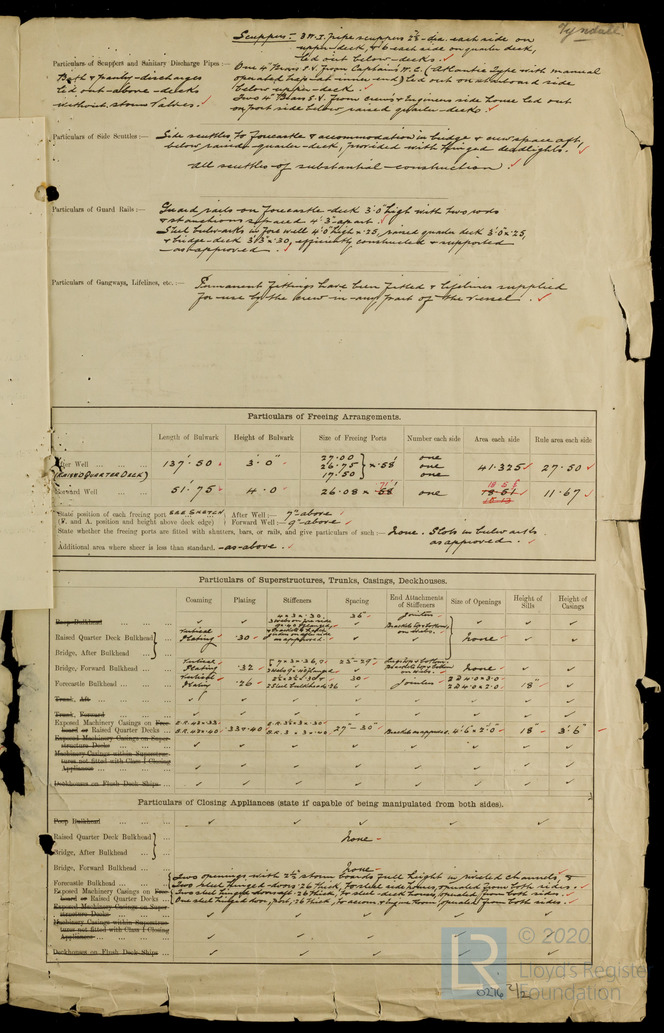 Tyndale
Scuppers :- 3 W.I. pipe scuppers 2½" dia. each side on
upper deck, & 6 each side on quarter deck,
led out below decks.
Particulars of Scuppers and Sanitary Discharge Pipes :—
One 4" Brass S.V. from Captains W.C. (Atlantic Type with manual
Bath & Pantry discharges
operated trap at inner end) led out on starboard side
led out above decks
below upper deck.
without storm valves.
Two 4" Brass S.V. from crew's & Engineers side house led out
on port side below raised quarter decks.
Particulars of Side Scuttles :—
Side scuttles to forecastle & accommodation in bridge & crew space aft,
below raised quarter deck, provided with hinged deadlights.
All scuttles of substantial construction.
Particulars of Guard Rails :—
Guard rails on forecastle deck 3'.0" high with two rods
& stanchions spaced 4'.3" apart.
Steel bulwarks in fore well 4'.0" high x .25, raised quarter deck 3'.0" x .25,
& bridge deck x .30, efficiently constructed & supported
as approved.
Particulars of Gangways, Lifelines, etc. :—
Permanent fittings have been fitted & lifelines supplied
for use by the crew in any part of the vessel.
Particulars of Freeing Arrangements.
Length of Bulwark Height of Bulwark Size of Freeing Ports Number each side Area each side Rule area each side
After Well 137'.50 3'.0" 27.00 26.75 17.50 } x .58' one one one 41.325 27.50
(RAISED QUARTER DECK)
Forward Well 51'.75 4'.0 26.08 x .71' one 18.51 11.67
State position of each freeing port SEE SKETCH After Well :— 7" above
(F. and A. position and height above deck edge) Forward Well :— 9" above
State whether the freeing ports are fitted with shutters, bars, or rails, and give particulars of such :— None. Slots in bulwarks
as approved.
Additional area where sheer is less than standard. as above.
Particulars of Superstructures, Trunks, Casings, Deckhouses.
Coaming Plating Stiffeners Spacing End Attachments of Stiffeners Size of Openings Height of Sills Height of Casings
Poop Bulkhead
Raised Quarter Deck Bulkhead Vertical Plating .30 None
Bridge, After Bulkhead
Bridge, Forward Bulkhead Vertical Plating .32 None
Forecastle Bulkhead Vertical Plating .26 30 2 @ 4'.0 x 2'.0 18"
Trunk, Aft
Trunk, Forward
Exposed Machinery Casings on Freeboard or Raised Quarter Decks .33 & .40 27" - 30" Brackets as approved 4'.6" x 2'.0" 18" 3'.6"
Exposed Machinery Casings on Superstructure Decks
Machinery Casings within Superstructures not fitted with Class I Closing Appliances
Deckhouses on Flush Deck Ships
Particulars of Closing Appliances (state if capable of being manipulated from both sides).
Poop Bulkhead
Raised Quarter Deck Bulkhead
None
Bridge, After Bulkhead
Bridge, Forward Bulkhead None
Forecastle Bulkhead Two openings with 2½" storm boards full height in riveted channels, &
Two steel hinged doors .26 thick, to steel side houses, operated from both sides.
Exposed Machinery Casings on Freeboard or Raised Quarter Decks Two steel hinged doors aft .26 thick, to steel deck houses, operated from both sides.
One steel hinged door, port, .26 thick, to accom & Engine Room operated from both sides.
Exposed Machinery Casings on Superstructure Decks
Machinery Casings within Superstructures not fitted with Class I Closing Appliances
Deckhouses on Flush Deck Ships
© 2020
LR
Lloyd's Register
Foundation
0216 2/2